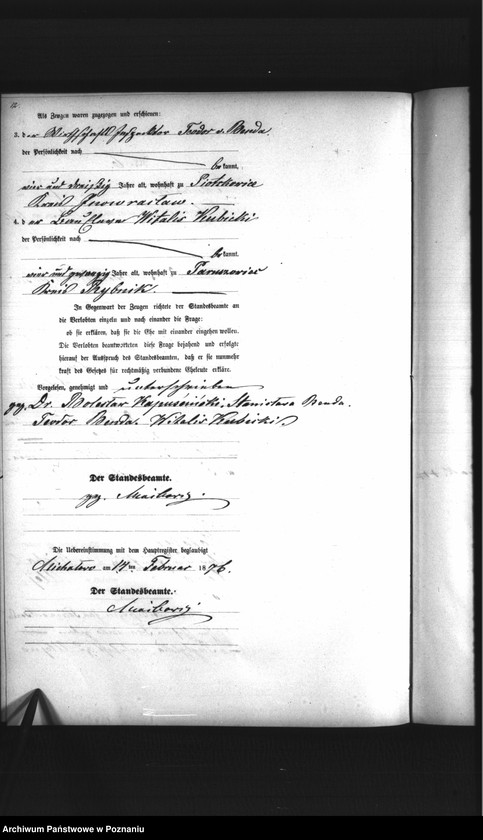 Als Zeugen waren zugezogen und erschienen:
3. der Wirthschafts Inspektor Teodor v. Benda.
der Persönlichkeit nach
bekannt,
vier und dreißig Jahre alt, wohnhaft zu Piotrkowice
Kreis Inowraclaw.
4. der Witalis Kubicki
der Persönlichkeit nach
bekannt,
vier und zwanzig Jahre alt, wohnhaft zu
Kreis Rybnik.
In Gegenwart der Zeugen richtete der Standesbeamte an
die Verlobten einzeln und nach einander die Frage:
ob sie erklären, daß sie die Ehe mit einander eingehen wollen.
Die Verlobten beantworteten diese Frage bejahend und erfolgte
hierauf der Ausspruch des Standesbeamten, daß er sie nunmehr
kraft des Gesetzes für rechtmäßig verbundene Eheleute erkläre.
Vorgelesen, genehmigt und unterschrieben
gez. Dr. Bolesław Kapuściński. Stanisława Benda.
Teodor Benda. Witalis Kubicki
Der Standesbeamte.
gez.
Die Uebereinstimmung mit dem Hauptregister beglaubigt
am 17ten Februar 1876.
Der Standesbeamte.
Archiwum Państwowe w Poznaniu